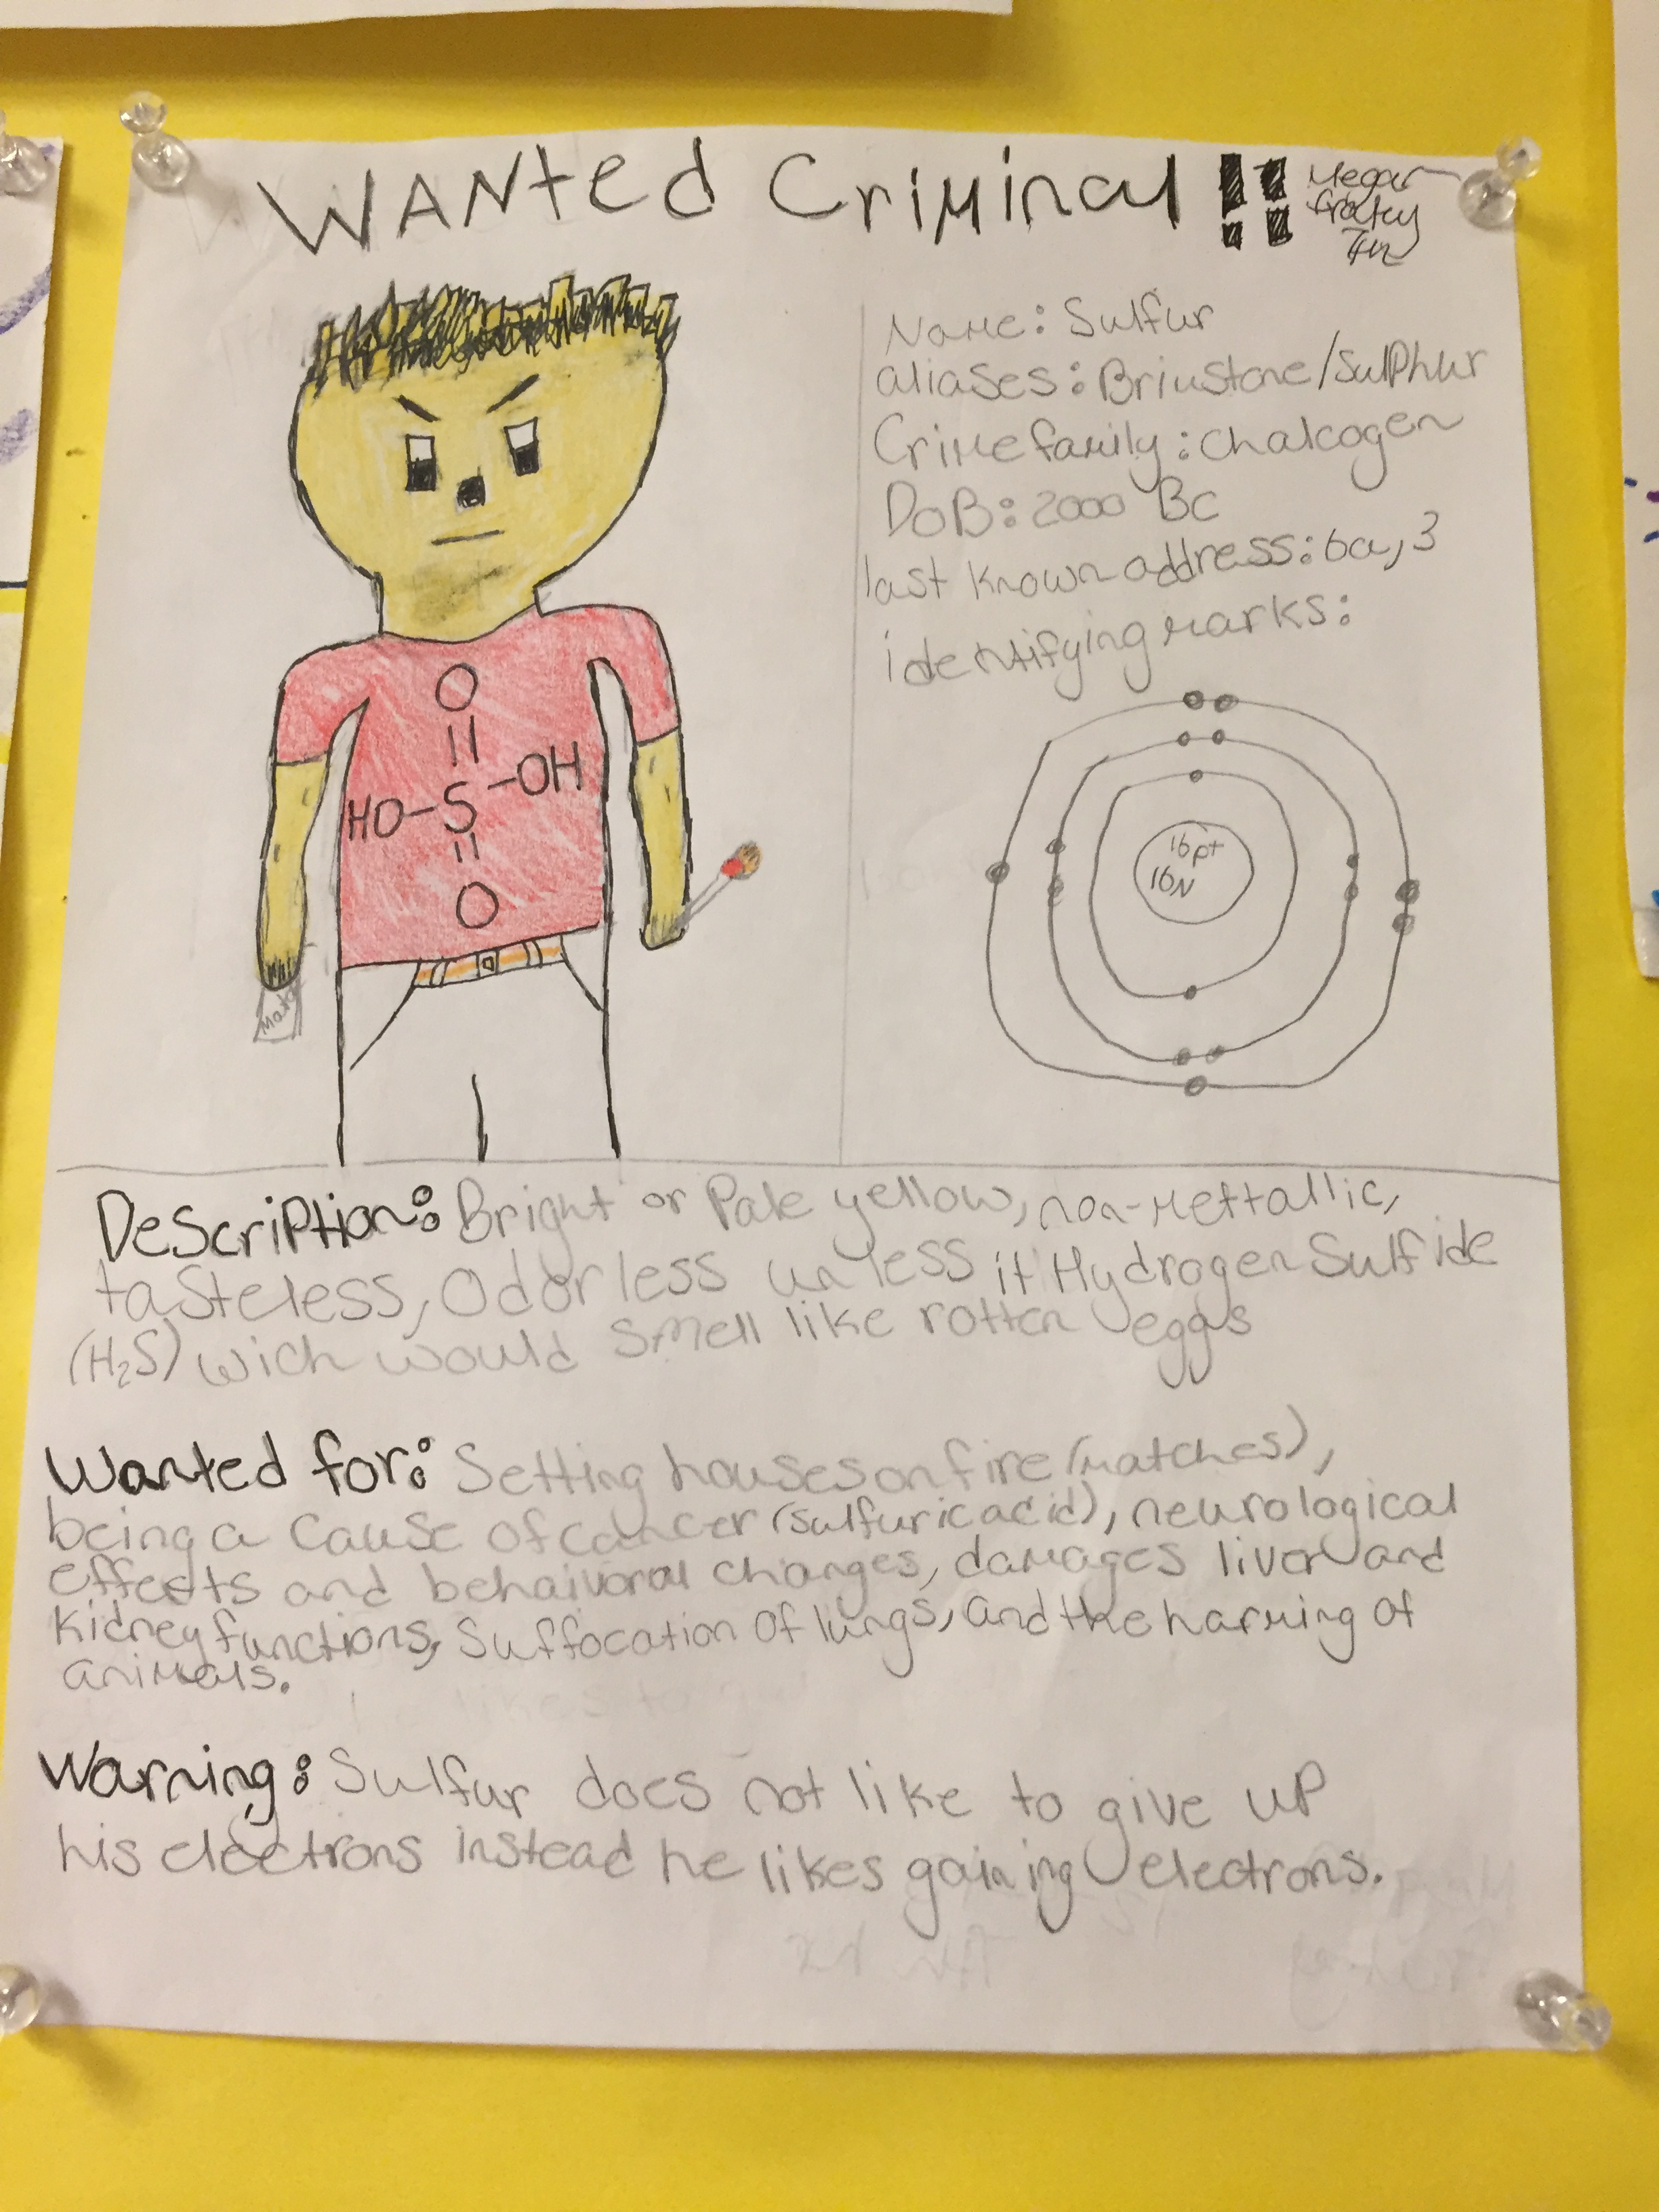 WANted CriMinal !!
Megan
Fraley
7th
Name: Sulfur
aliases: Brimstone/Sulphur
Crime family: Chalcogen
DoB: 2000 BC
last known address: 6a, 3
identifying marks:
O
HO-S-OH
O
16p+
16N
Description: Bright or Pale yellow, non-mettallic,
tasteless, Odorless unless it Hydrogen Sulfide
(H₂S) wich would smell like rotten eggs
Wanted for: Setting houses on fire (matches),
being a cause of cancer (sulfuric acid), neurological
effects and behaivoral changes, damages liver and
kidney functions, suffocation of lungs, and the harming of
animals.
Warning: Sulfur does not like to give up
his electrons instead he likes gaining electrons.